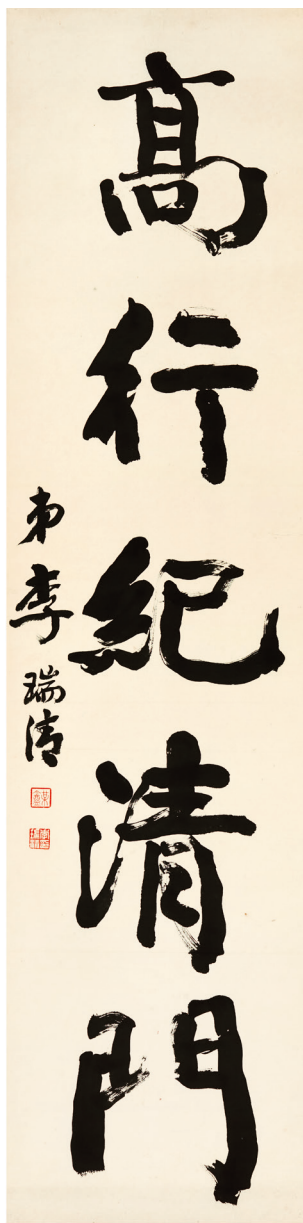 高行紀清門
弟李瑞清